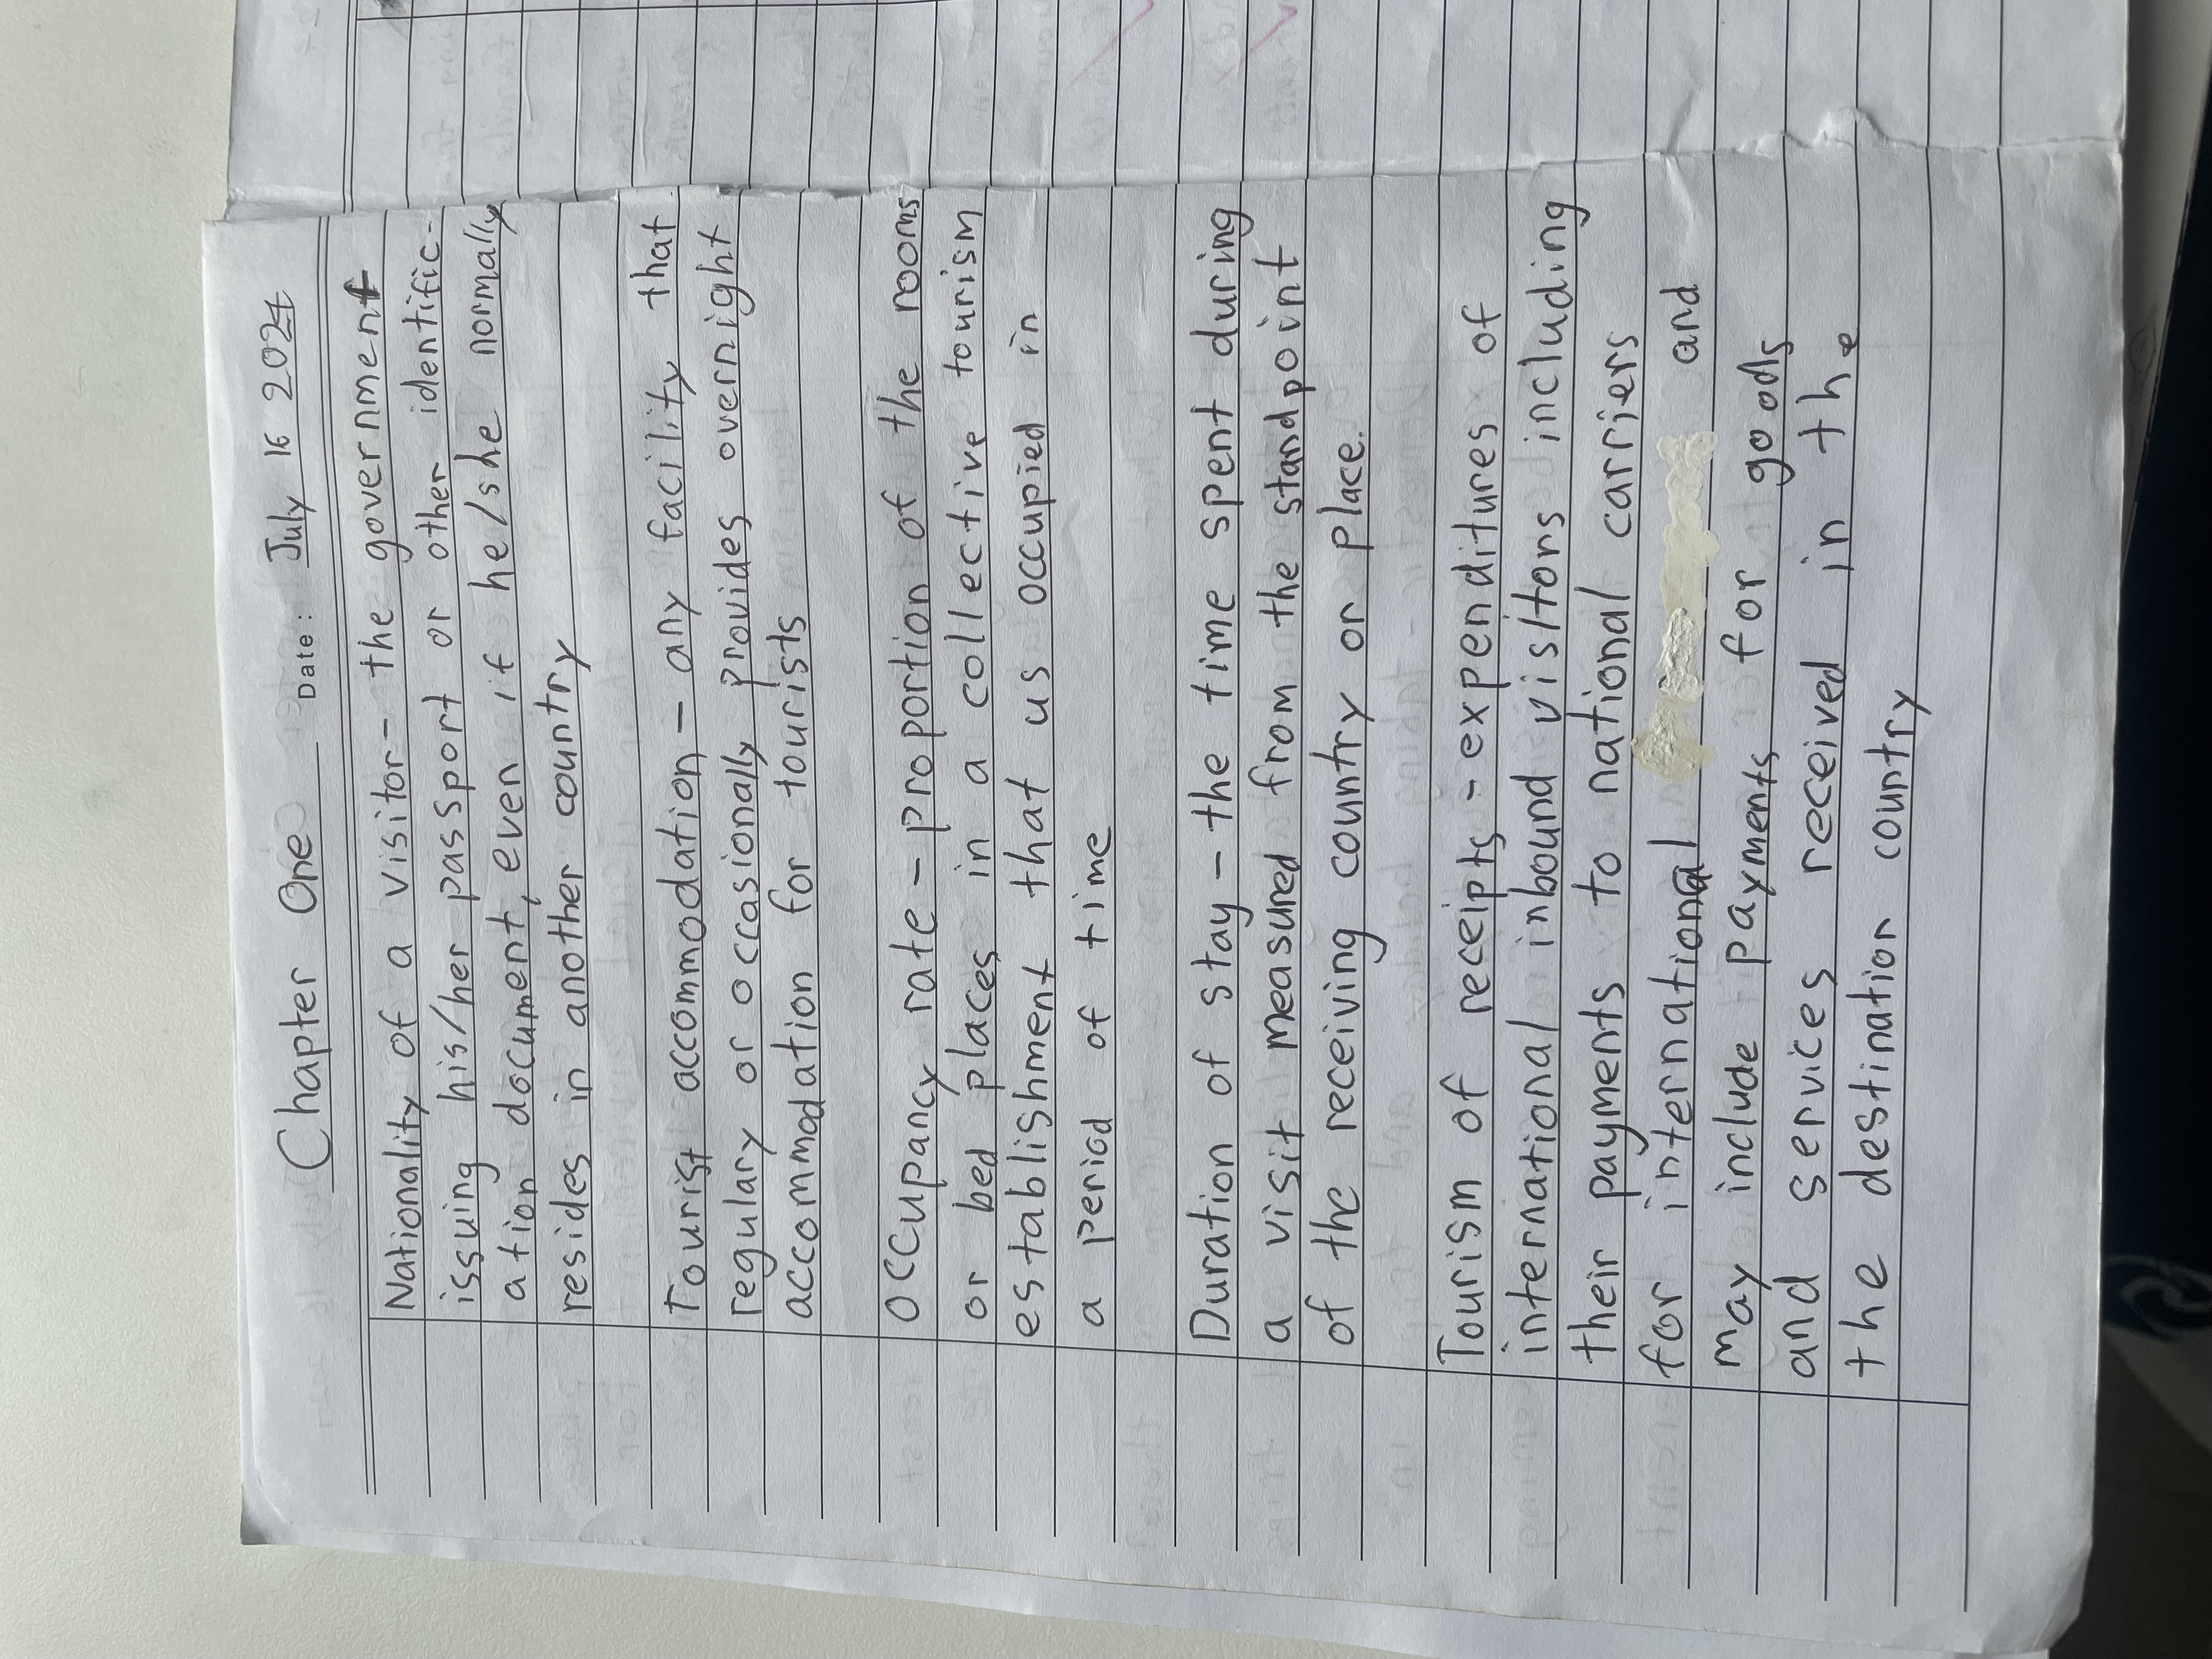 Chapter One Date: July 16 2024
Nationality of a visitor - the government
issuing his/her passport or other identific-
ation document, even if he/she normally
resides in another country
Tourist accommodation - any facility that
regulary or occasionally provides overnight
accommodation for tourists
Occupancy rate - proportion of the rooms
or bed places in a collective tourism
establishment that us occupied in
a period of time
Duration of stay - the time spent during
a visit measured from the standpoint
of the receiving country or place.
Tourism of receipts - expenditures of
international inbound visitors including
their payments to national carriers
for international and
may include payments for goods
and services received in the
the destination country